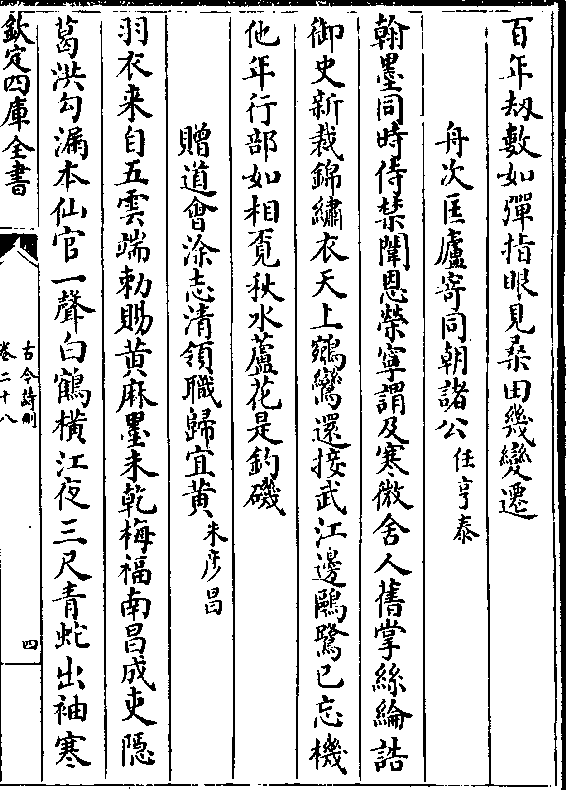 百年劫數如彈指眼見桑田幾變遷
舟次匡廬寄同朝諸公任亨泰
翰墨同時侍禁闈恩榮寧謂及寒微舍人舊掌絲綸誥
御史新裁錦繡衣天上鵷鸞還接武江邊鷗鷺已忘機
他年行部如相覔秋水蘆花是釣磯
贈道㑹涂志清領職歸宜黄朱彥昌
羽衣来自五雲端勅賜黄麻墨未乾梅福南昌成吏隱
葛洪勾漏本仙官一聲白鶴横江夜三尺青蛇出袖寒
欽定四庫全書
古今詩刪
卷二十八
四